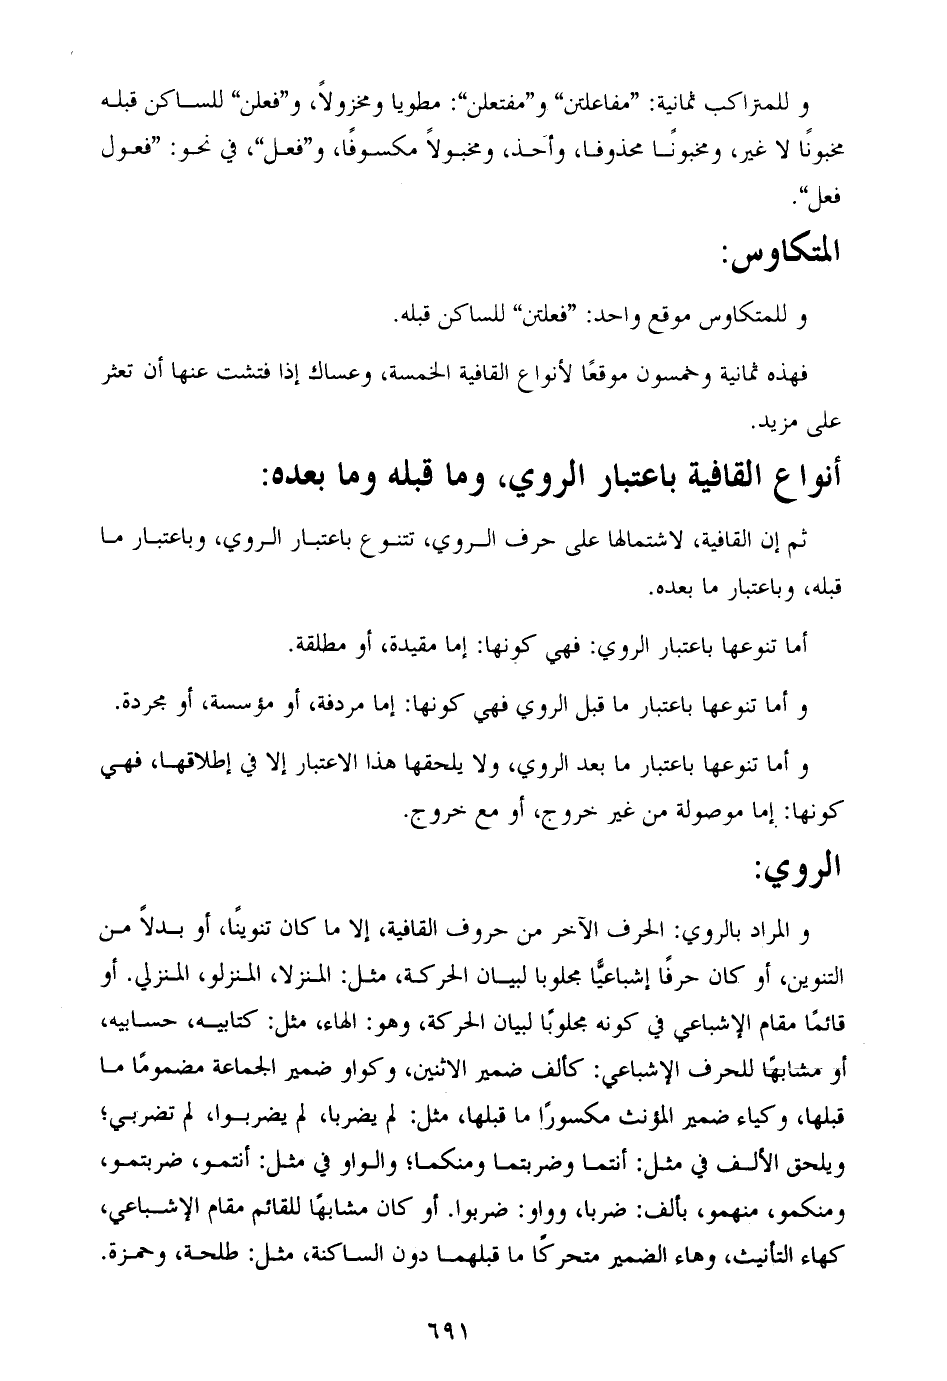 و للمتراكب ثمانية: ”مفاعلتن“ و”مفتعلن“: مطويا ومخزولاً، و”فعلن“ للساكن قبله
مخبونًا لا غير، ومخبونًا محذوفا، وأحذ، ومخبولاً مكسوفًا، و”فعل“، في نحو: ”فعول
فعل“.
المتكاوس:
و للمتكاوس موقع واحد: ”فعلتن“ للساكن قبله.
فهذه ثمانية وخمسون موقعًا لأنواع القافية الخمسة، وعساك إذا فتشت عنها أن تعثر
على مزيد.
أنواع القافية باعتبار الروي، وما قبله وما بعده:
ثم إن القافية، لاشتمالها على حرف الروي، تتنوع باعتبار الروي، وباعتبار ما
قبله، وباعتبار ما بعده.
أما تنوعها باعتبار الروي: فهي كونها: إما مقيدة، أو مطلقة.
و أما تنوعها باعتبار ما قبل الروي فهي كونها: إما مردفة، أو مؤسسة، أو مجردة.
و أما تنوعها باعتبار ما بعد الروي، ولا يلحقها هذا الاعتبار إلا في إطلاقها، فهي
كونها: إما موصولة من غير خروج، أو مع خروج.
الروي:
و المراد بالروي: الحرف الآخر من حروف القافية، إلا ما كان تنوينًا، أو بدلاً من
التنوين، أو كان حرفًا إشباعيًّا مجلوبا لبيان الحركة، مثل: المنزلا، المنزلو، المنزلي. أو
قائمًا مقام الإشباعي في كونه مجلوبًا لبيان الحركة، وهو: الهاء، مثل: كتابيه، حسابيه،
أو مشابهًا للحرف الإشباعي: كألف ضمير الاثنين، وكواو ضمير الجماعة مضمومًا ما
قبلها، وكياء ضمير المؤنث مكسورًا ما قبلها، مثل: لم يضربا، لم يضربوا، لم تضربي؛
ويلحق الألف في مثل: أنتما وضربتما ومنكما؛ والواو في مثل: أنتمو، ضربتمو،
ومنكمو، منهمو، بألف: ضربا، وواو: ضربوا. أو كان مشابهًا للقائم مقام الإشباعي،
كهاء التأنيث، وهاء الضمير متحركًا ما قبلهما دون الساكنة، مثل: طلحة، وحمزة.
٦٩١